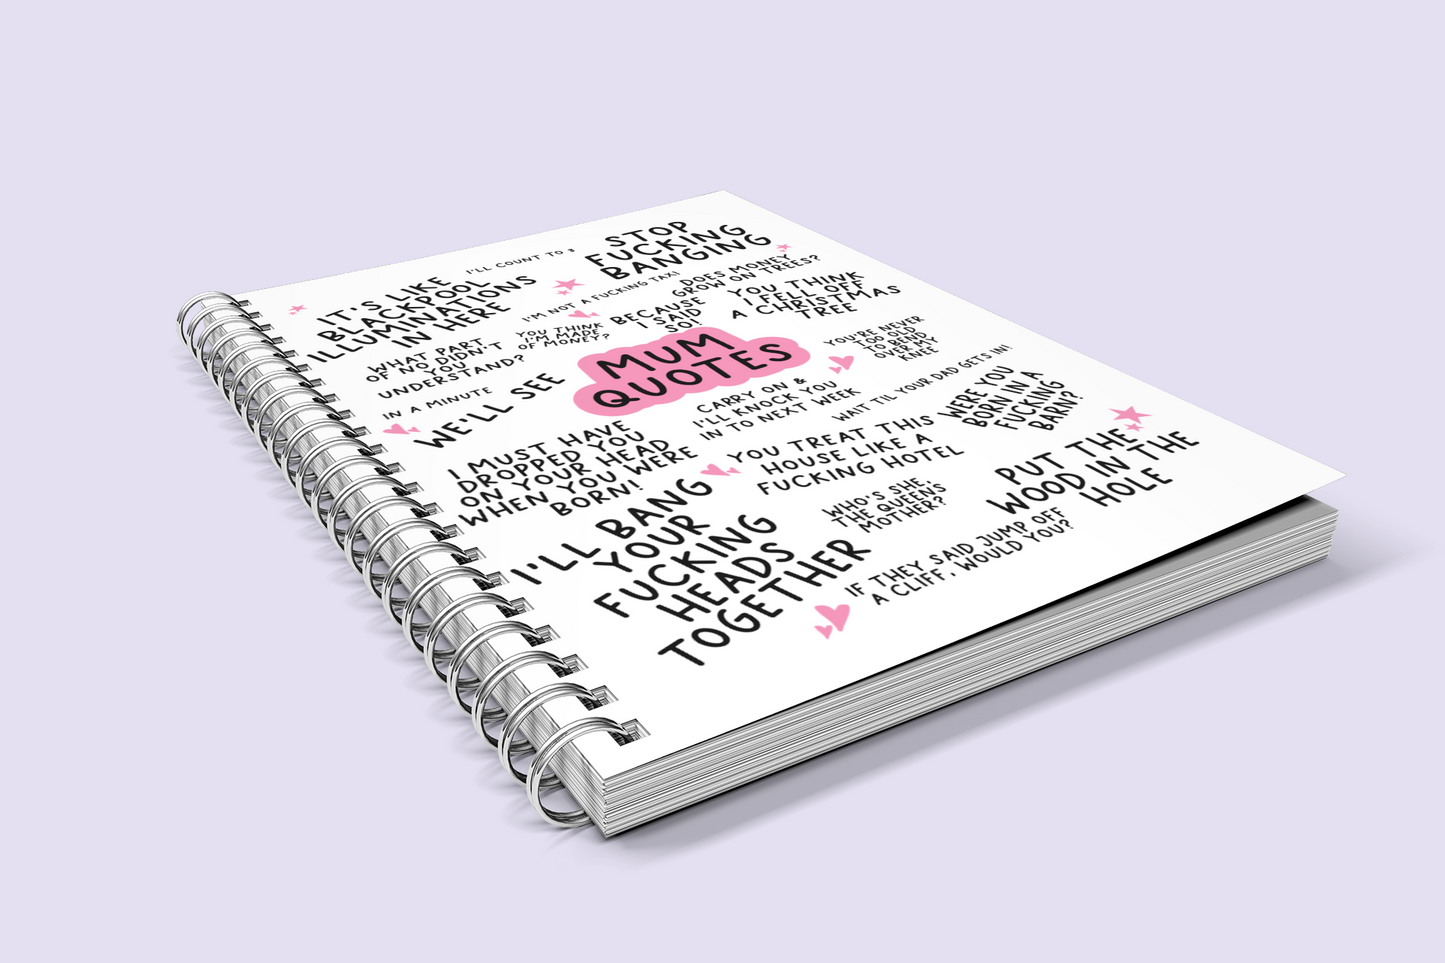 I'LL COUNT TO 3
STOP
FUCKING
BANGING
IT'S LIKE
BLACKPOOL
ILLUMINATIONS
IN HERE
I'M NOT A FUCKING TAXI
DOES MONEY
GROW ON TREES?
BECAUSE
I SAID
SO!
YOU THINK
I FELL OFF
A CHRISTMAS
TREE
WHAT PART
OF NO DIDN'T
YOU
UNDERSTAND?
YOU THINK
I'M MADE
OF MONEY?
MUM
QUOTES
YOU'RE NEVER
TOO OLD
TO BEND
OVER MY
KNEE
IN A MINUTE
WE'LL SEE
CARRY ON &
I'LL KNOCK YOU
IN TO NEXT WEEK
WAIT TIL YOUR DAD GETS IN!
WERE YOU
BORN IN A
FUCKING
BARN?
I MUST HAVE
DROPPED YOU
ON YOUR HEAD
WHEN YOU WERE
BORN!
YOU TREAT THIS
HOUSE LIKE A
FUCKING HOTEL
PUT THE
WOOD IN THE
HOLE
I'LL BANG
YOUR
FUCKING
HEADS
TOGETHER
WHO'S SHE
THE QUEEN'S
MOTHER?
IF THEY SAID JUMP OFF
A CLIFF, WOULD YOU?